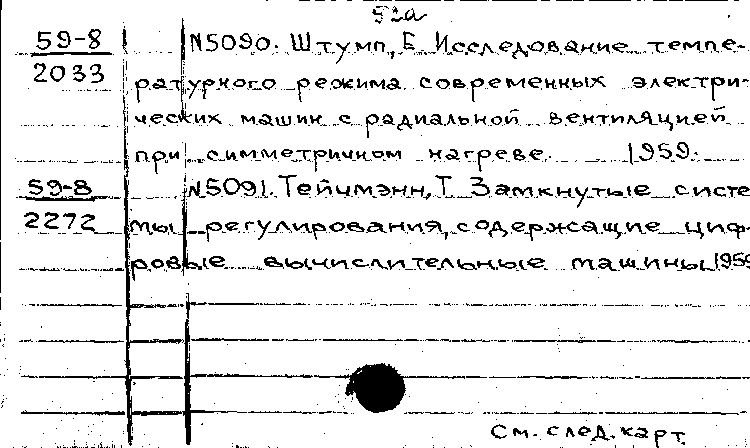 52а
59-8 N5090. Штумп, Б. Исследование темпе-
2033 ратурного режима современных электри-
ческих машин с радиальной вентиляцией
при симметричном нагреве. 1959.
59-8 N5091. Тейчмэнн, Т. Замкнутые систе
2272 мы регулирования, содержащие циф-
ровые вычислительные машины 1959
См. след. карт.